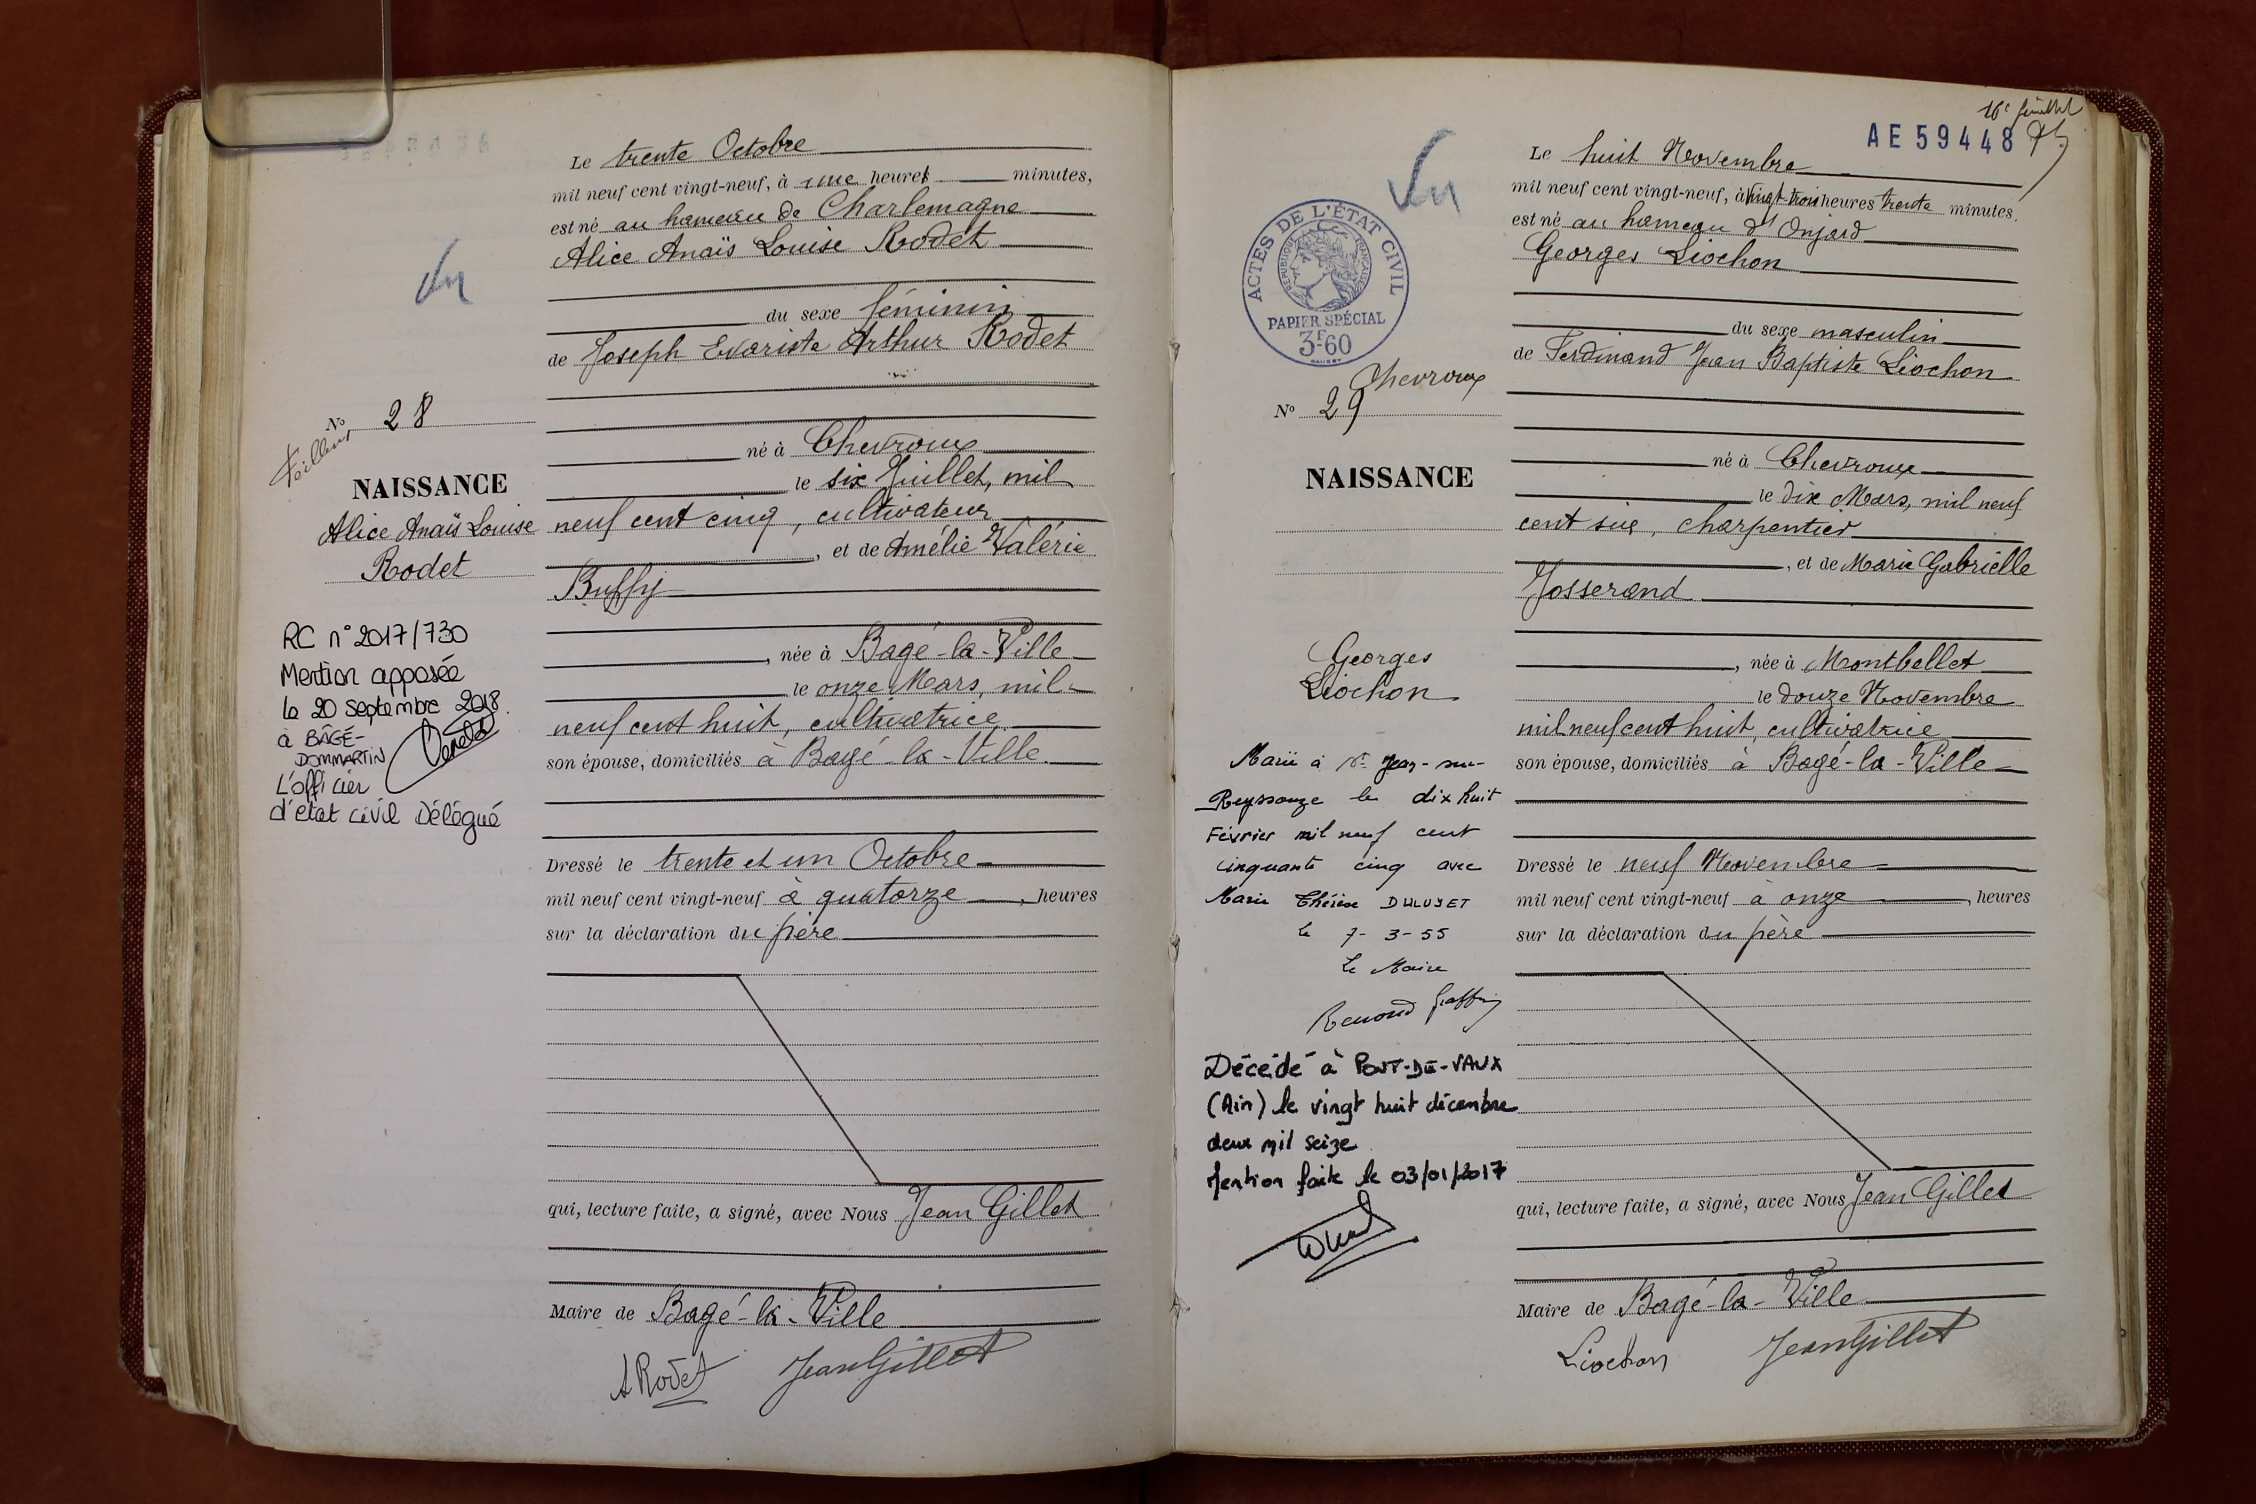 Le trente Octobre
mil neuf cent vingt-neuf, à une heures minutes,
est né au hameau de Charlemagne
Alice Anaïs Louise Rodet
du sexe féminin
de Joseph Evariste Arthur Rodet
né à Chevroux
le six Juillet, mil
neuf cent cinq, cultivateur
, et de Amélie Valérie
Buffy
, née à Bagé-la-Ville
le onze Mars, mil
neuf cent huit, cultivatrice
son épouse, domiciliés à Bagé-la-Ville
Dressé le trente et un Octobre
mil neuf cent vingt-neuf à quatorze, heures
sur la déclaration du père
qui, lecture faite, a signé, avec Nous Jean Gillet
Maire de Bagé-la-Ville
ARodet JeanGillet
Vu
No 28
NAISSANCE
Alice Anaïs Louise
Rodet
RC n° 2017/730
Mention apposée
le 20 septembre 2018.
à BÂGÉ-
DOMMARTIN
L'officier
d'état civil Délégué
16e feuillet
AE59448
Le huit Novembre
mil neuf cent vingt-neuf, à vingt-trois heures trente minutes,
est né au hameau d'Onjard
Georges Liochon
du sexe masculin
de Ferdinand Jean Baptiste Liochon
né à Chevroux
le dix Mars, mil neuf
cent six, charpentier
, et de Marie Gabrielle
Josserand
, née à Montbellet
le douze Novembre
mil neuf cent huit, cultivatrice
son épouse, domiciliés à Bagé-la-Ville
Dressé le neuf Novembre
mil neuf cent vingt-neuf à onze, heures
sur la déclaration du père
qui, lecture faite, a signé, avec Nous Jean Gillet
Maire de Bagé-la-Ville
Liochon JeanGillet
Vu
ACTES DE L'ÉTAT CIVIL
RÉPUBLIQUE FRANÇAISE
PAPIER SPÉCIAL
3F60
Chevroux
No 29
NAISSANCE
Georges
Liochon
Marié à St Jean-sur-
Reyssouze le dix huit
Février mil neuf cent
cinquante cinq avec
Marie Thérèse DULUSET
le 7-3-55
Le Maire
Décédé à PONT-DE-VAUX
(Ain) le vingt huit décembre
deux mil seize
Mention faite le 03/01/2017